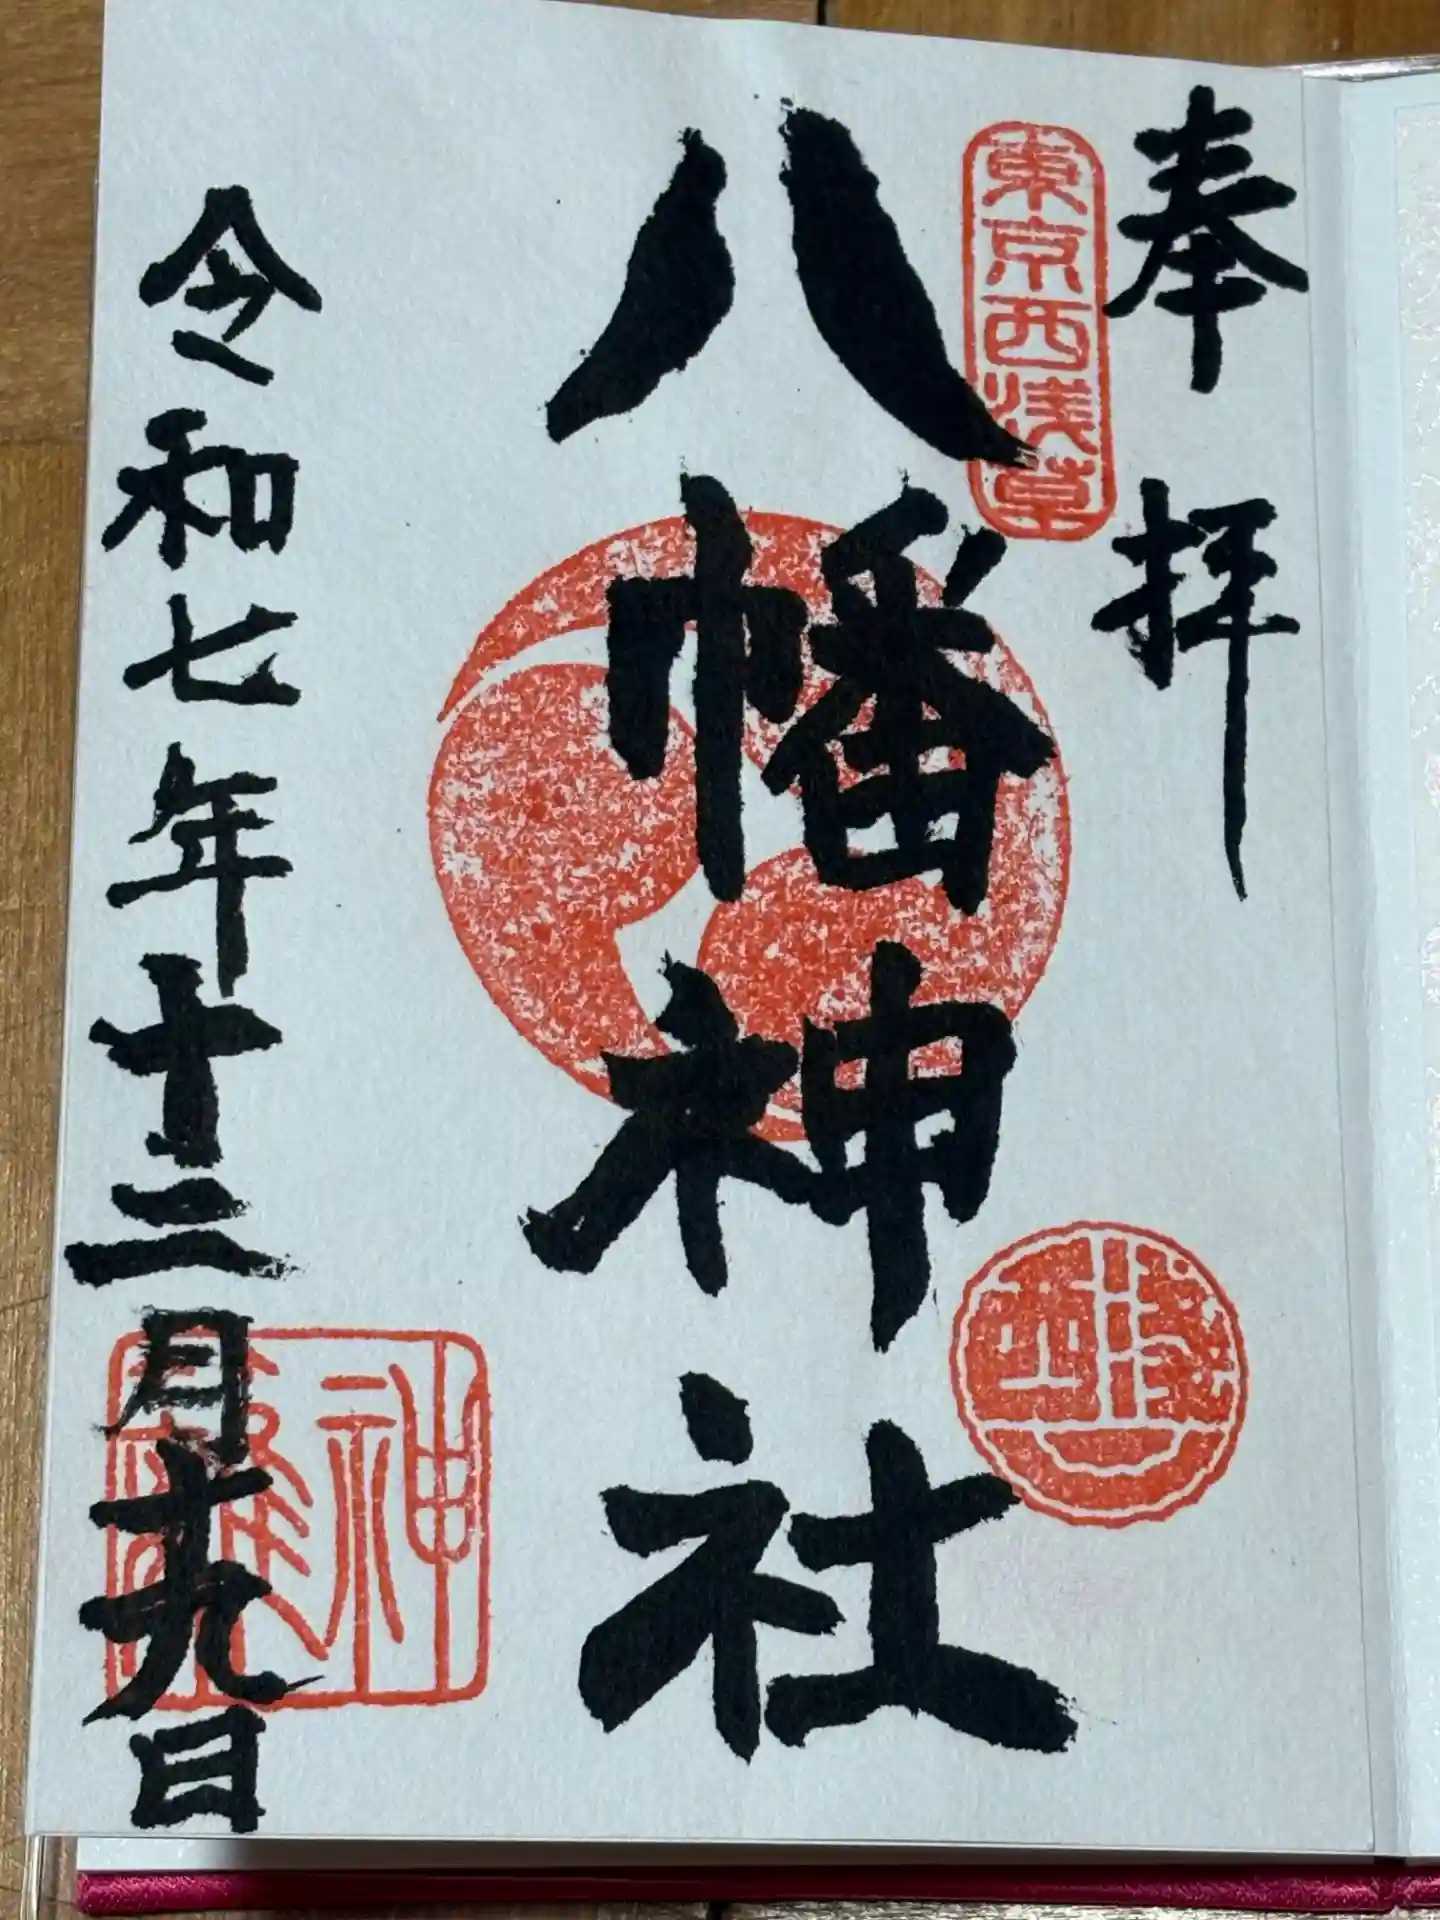 奉拝
東京西浅草
八幡神社
浅西
神璽
令和七年十二月十九日